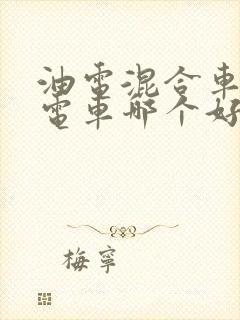 油電混合車
電車哪个好
梅寧